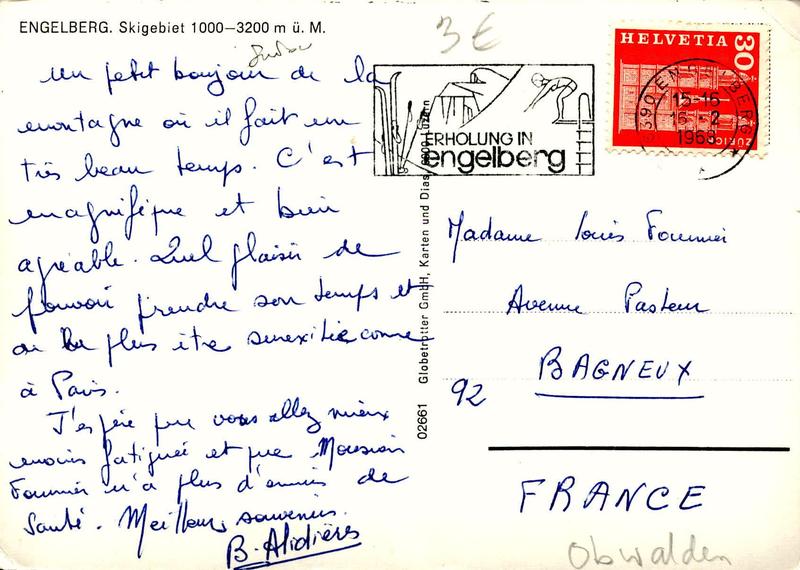 ENGELBERG. Skigebiet 1000–3200 m ü. M.
3 €
Un petit bonjour de la
montagne où il fait un
très beau temps. C'est
magnifique et bien
agréable. Quel plaisir de
pouvoir prendre son temps et
ou plus être comme
à Paris.
J'espère que vous allez mieux
moins fatiguée et que Monsieur
Fournier n'a plus d'ennuis de
Santé. Meilleurs souvenirs.
B. Alidières
ERHOLUNG IN
engelberg
HELVETIA 30
ZÜRICH
6390 ENGELBERG
15-16
-2
1968
02661 Globetrotter GmbH, Karten und Dias, Luzern
Madame Louis Fournier
Avenue Pasteur
92 BAGNEUX
FRANCE
Obwalden